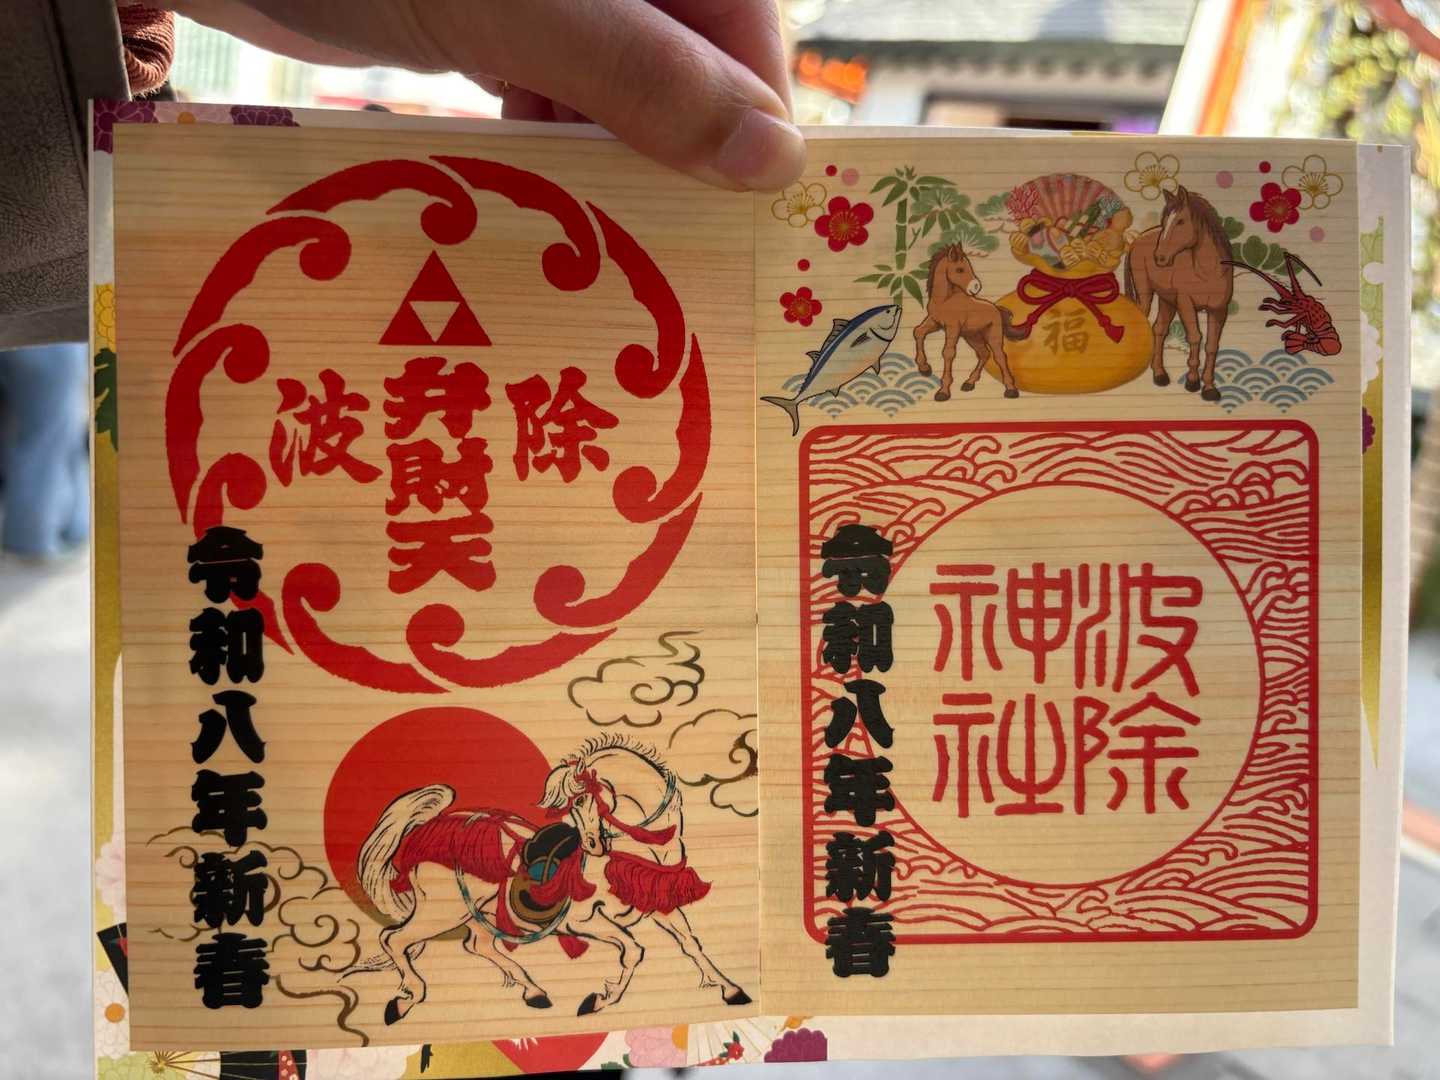 波除
弁財天
令和八年新春
福
波除
神社
令和八年新春